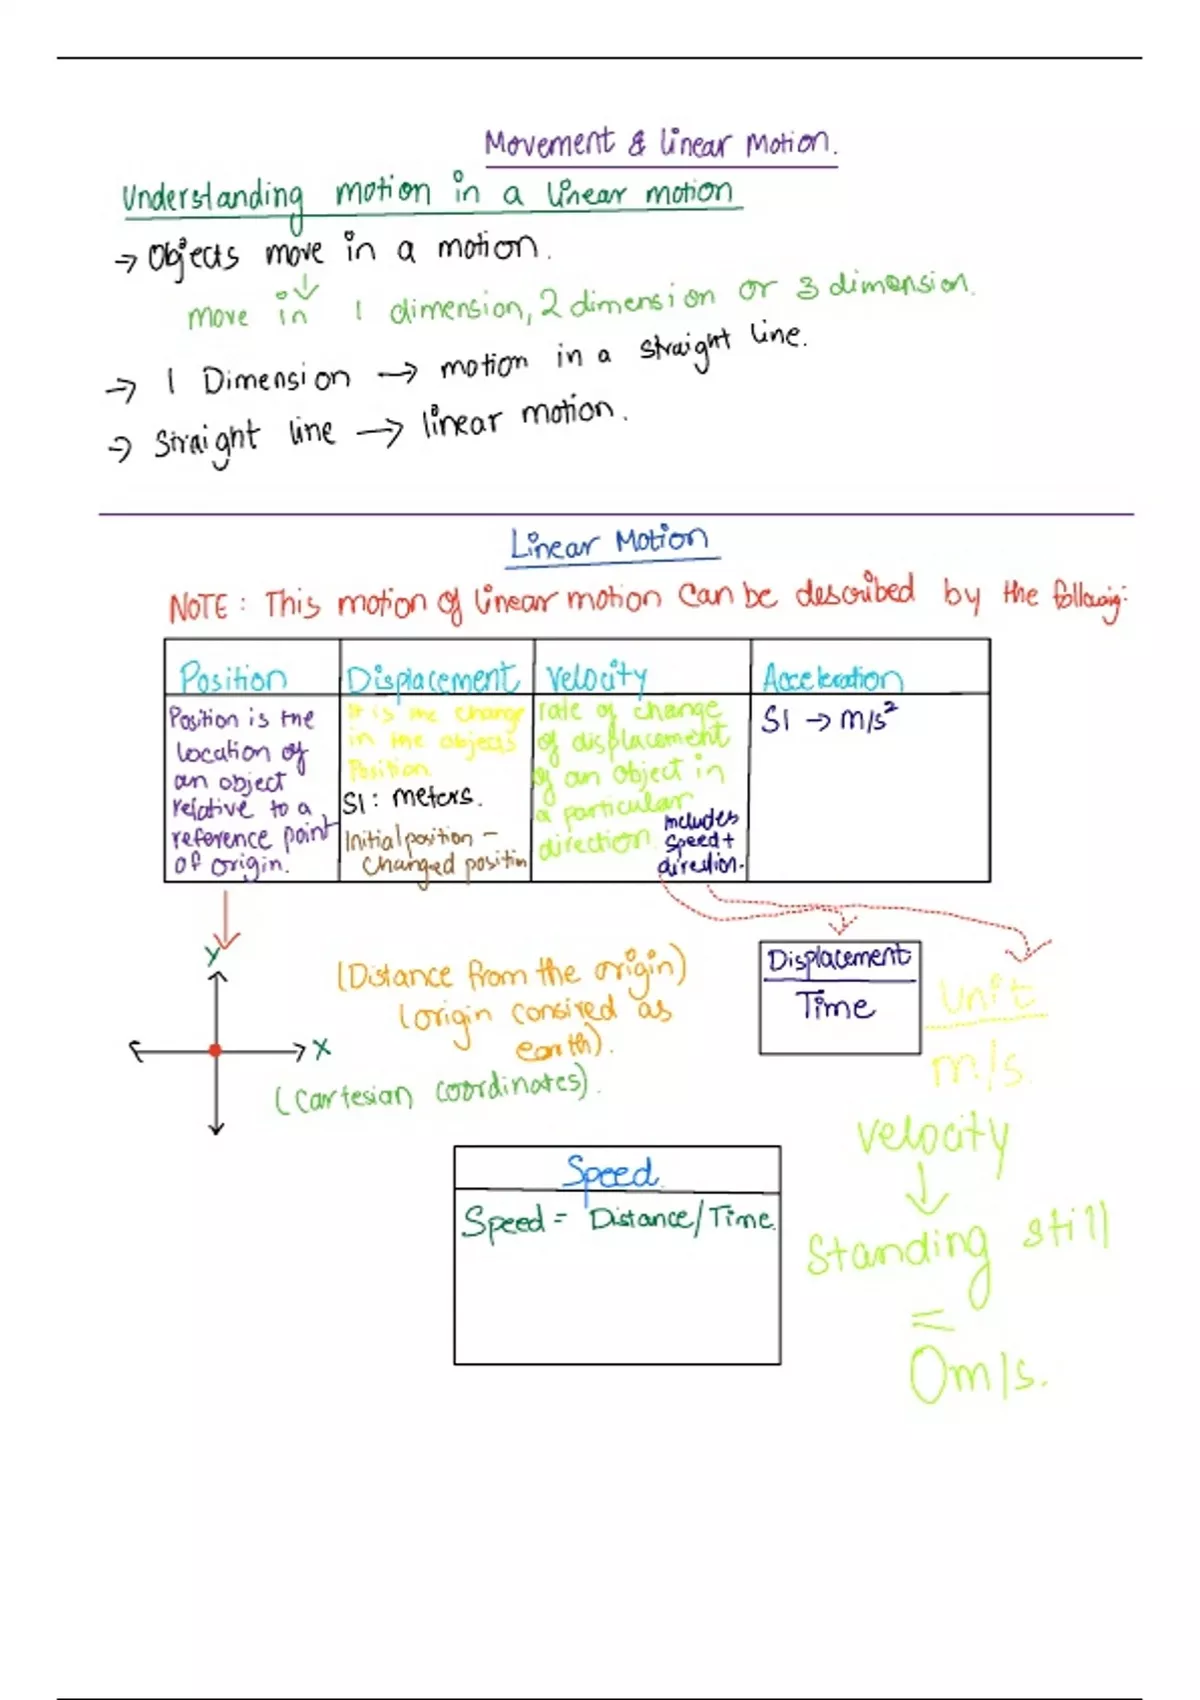 Movement & linear Motion.
Understanding motion in a linear motion
→ Objects move in a motion.
move in 1 dimension, 2 dimension or 3 dimension.
→ 1 Dimension → motion in a straight line.
→ Straight line → linear motion.
Linear Motion
NOTE: This motion of linear motion can be described by the following:
Position
Displacement
Velocity
Acceleration
Position is the
location of
an object
relative to a
reference point
of origin.
It is the change
in the objects
Position.
SI: meters.
Initial position -
changed position
rate of change
of displacement
of an object in
a particular
direction.
includes
speed +
direction.
SI → m/s²
Y
X
(Distance from the origin)
(origin consired as
earth).
(Cartesian coordinates).
Displacement
Time
Unit
m/s.
Velocity
↓
Standing still
=
0m/s.
Speed
Speed = Distance/Time.